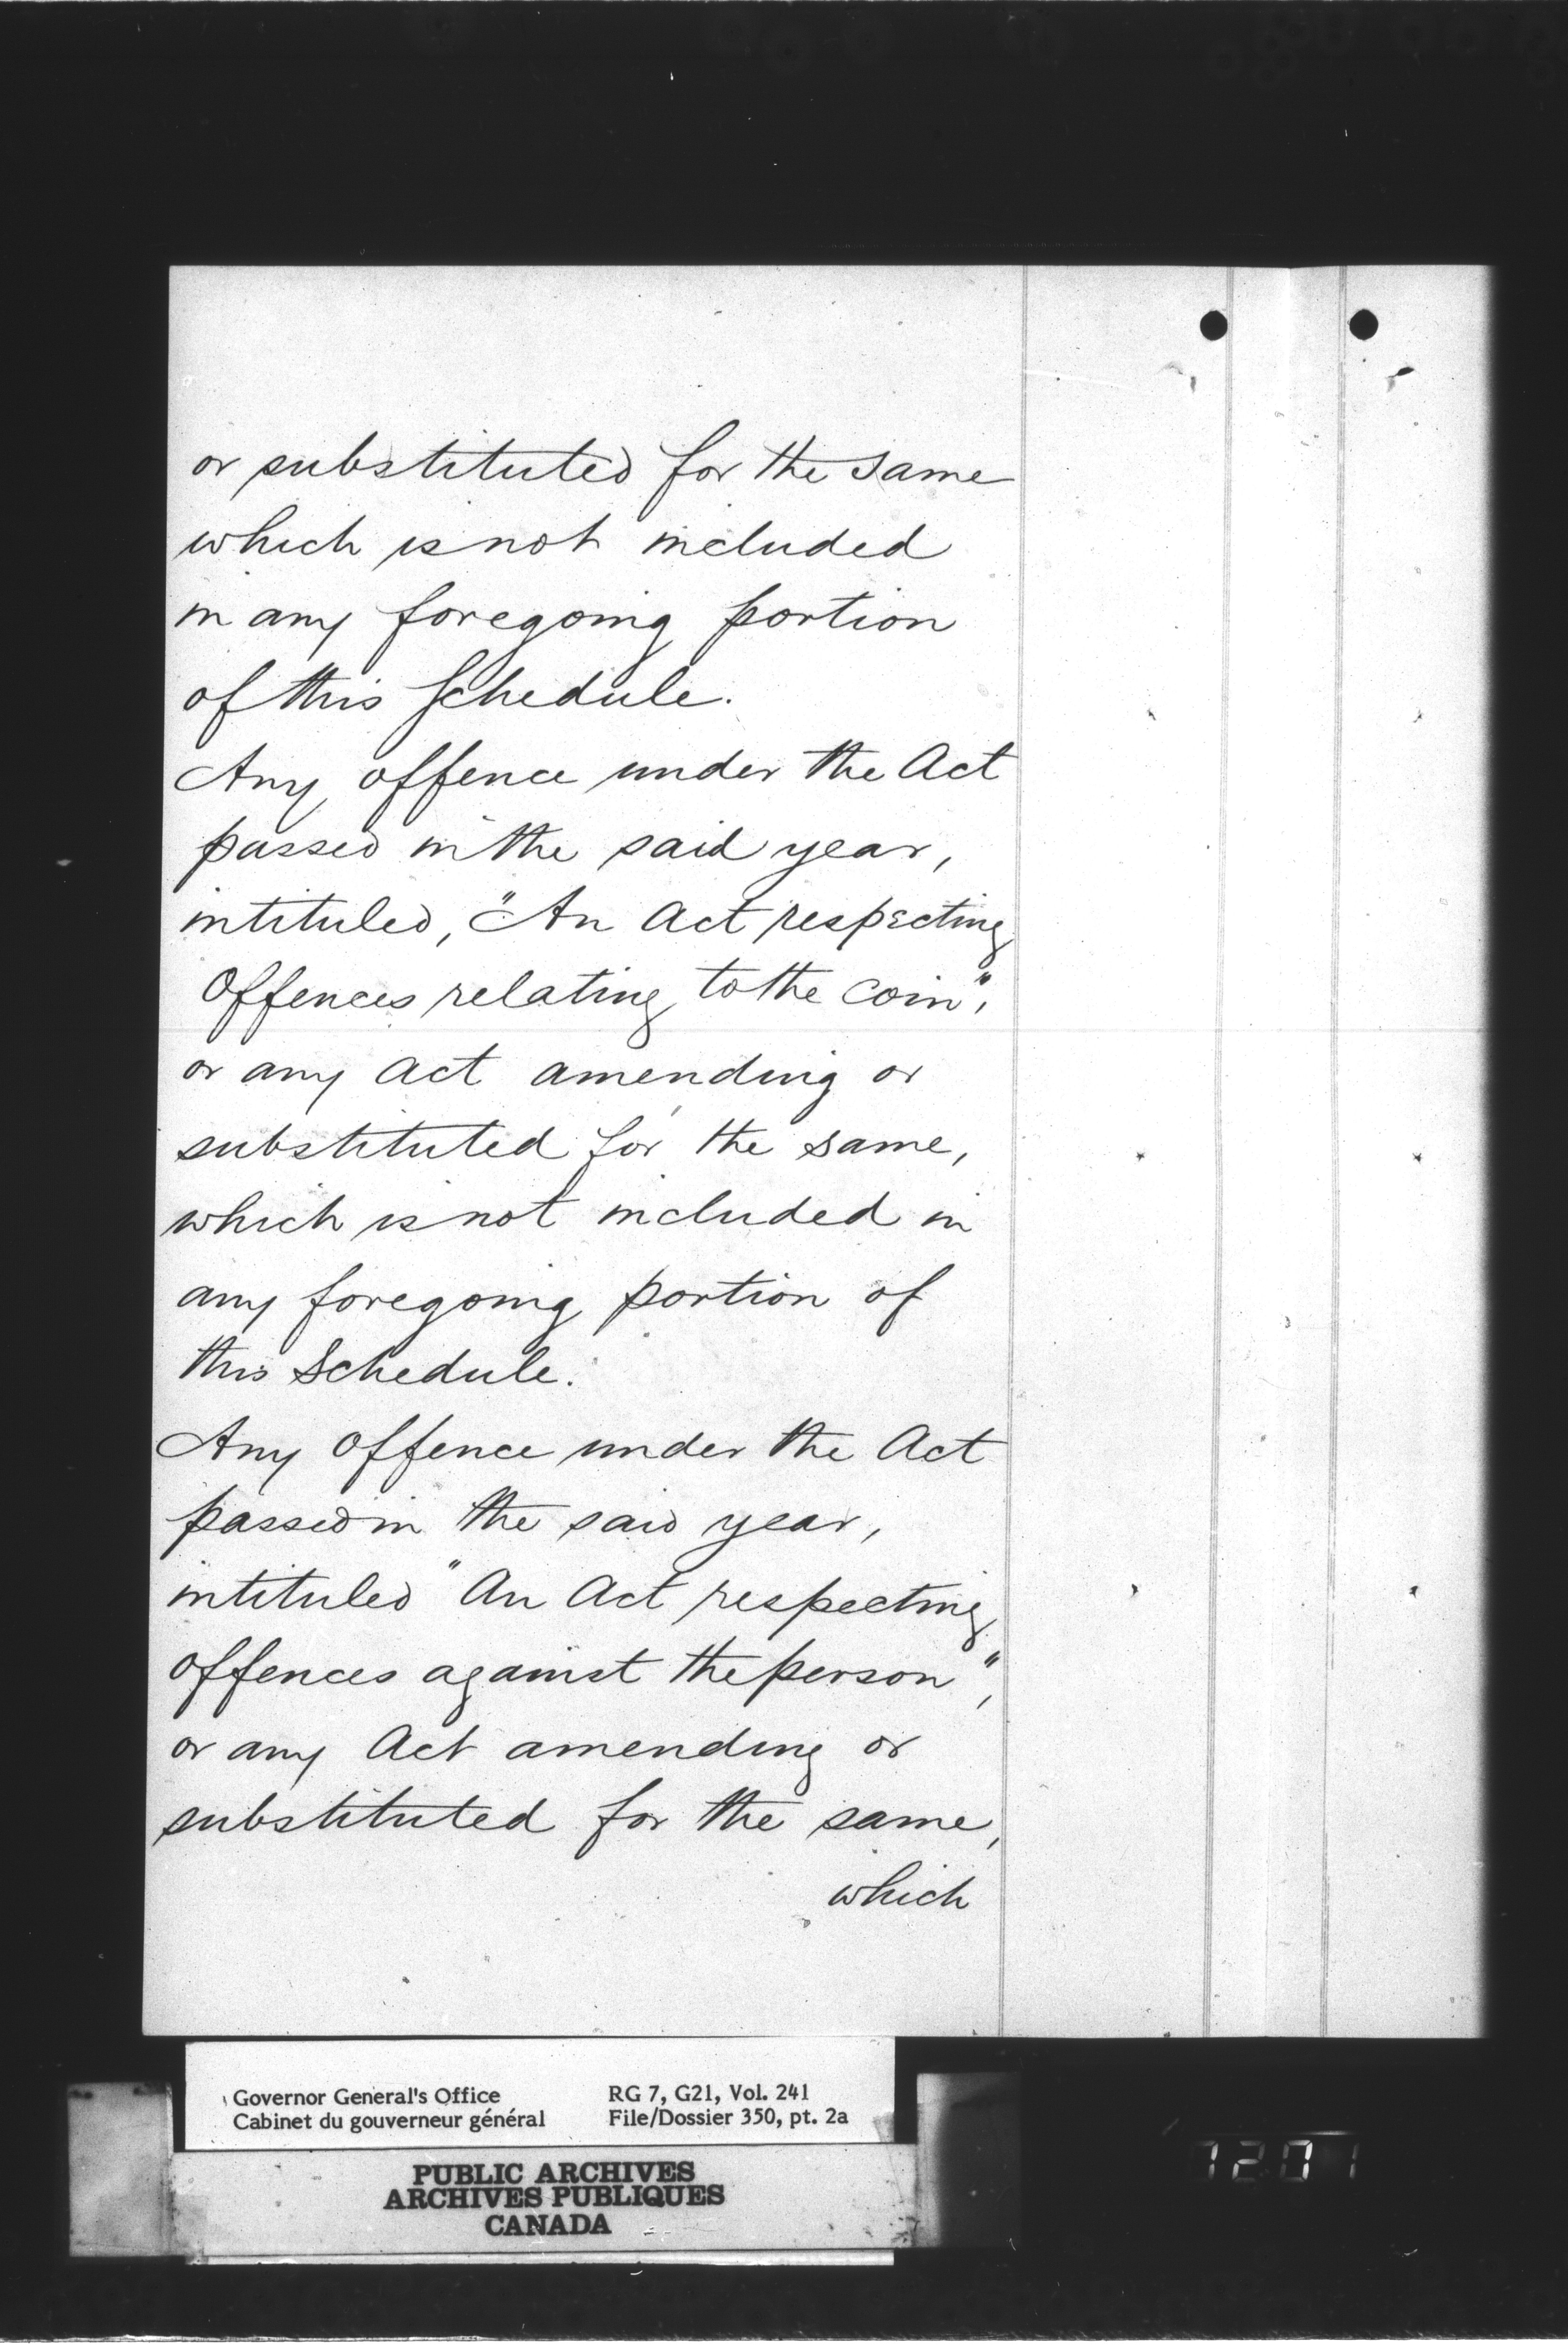 or substituted for the same
which is not included
in any foregoing portion
of this Schedule.
Any offence under the Act
passed in the said year,
intituled, "An Act respecting
Offences relating to the Coin",
or any Act amending or
substituted for the same,
which is not included in
any foregoing portion of
this Schedule.
Any offence under the Act
passed in the said year,
intituled "An Act respecting
offences against the person",
or any Act amending or
substituted for the same,
which
Governor General's Office RG 7, G21, Vol. 241
Cabinet du gouverneur général File/Dossier 350, pt. 2a
PUBLIC ARCHIVES
ARCHIVES PUBLIQUES
CANADA
1201